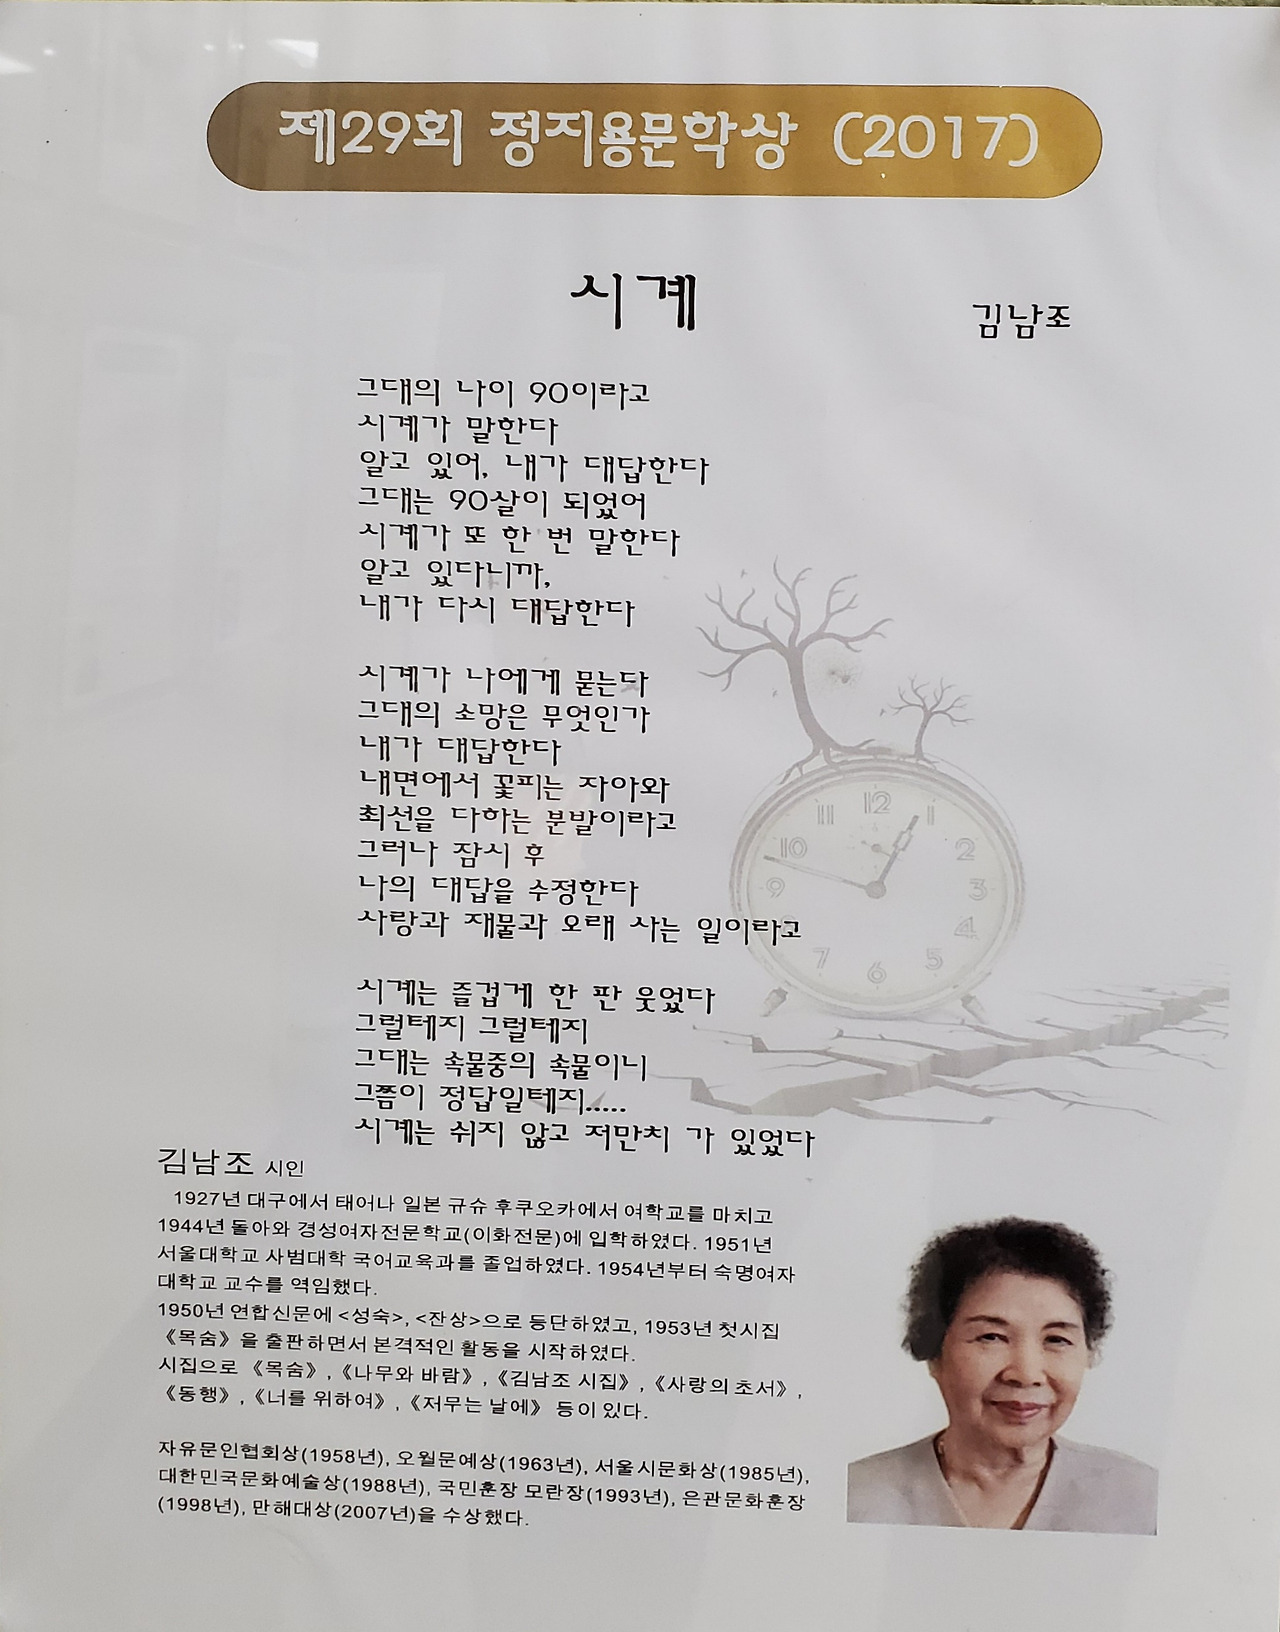 제29회 정지용문학상 (2017)
시계
김남조
그대의 나이 90이라고
시계가 말한다
알고 있어, 내가 대답한다
그대는 90살이 되었어
시계가 또 한 번 말한다
알고 있다니까,
내가 다시 대답한다
시계가 나에게 묻는다
그대의 소망은 무엇인가
내가 대답한다
내면에서 꽃피는 자아와
최선을 다하는 분발이라고
그러나 잠시 후
나의 대답을 수정한다
사랑과 재물과 오래 사는 일이라고
시계는 즐겁게 한 판 웃었다
그럴테지 그럴테지
그대는 속물중의 속물이니
그쯤이 정답일테지.....
시계는 쉬지 않고 저만치 가 있었다
12
1
2
3
4
5
6
7
8
9
10
11
김남조 시인
1927년 대구에서 태어나 일본 규슈 후쿠오카에서 여학교를 마치고
1944년 돌아와 경성여자전문학교(이화전문)에 입학하였다. 1951년
서울대학교 사범대학 국어교육과를 졸업하였다. 1954년부터 숙명여자
대학교 교수를 역임했다.
1950년 연합신문에 <성숙>, <잔상>으로 등단하였고, 1953년 첫시집
《목숨》을 출판하면서 본격적인 활동을 시작하였다.
시집으로 《목숨》, 《나무와 바람》, 《김남조 시집》, 《사랑의 초서》,
《동행》, 《너를 위하여》, 《저무는 날에》 등이 있다.
자유문인협회상(1958년), 오월문예상(1963년), 서울시문화상(1985년),
대한민국문화예술상(1988년), 국민훈장 모란장(1993년), 은관문화훈장
(1998년), 만해대상(2007년)을 수상했다.